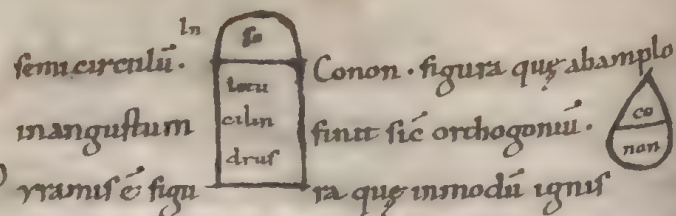 semicirculū. In
Conon. figura quę abamplo
inangustum finit sic̄ orthogoniū.
yramis ē figu ra quę inmodū ignis
cilin
drus
co
non